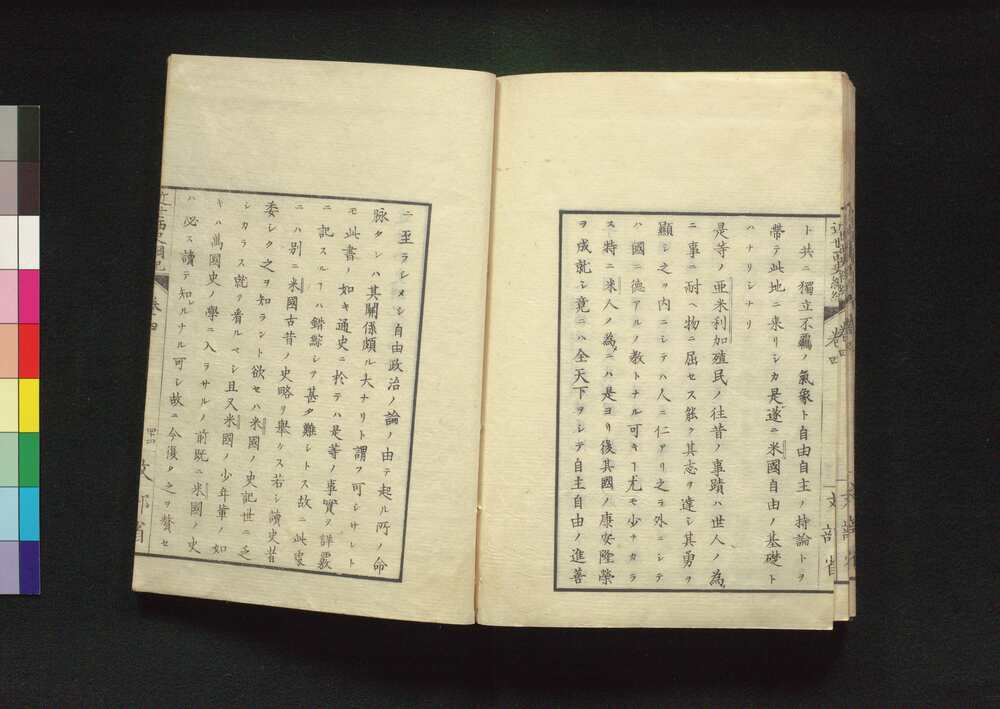 ト共ニ獨立不羈ノ氣象ト自由自主ノ持論トヲ
帶テ此地ニ来リシカ是遂ニ米國自由ノ基礎ト
ハナリシナリ
是等ノ亜米利加殖民ノ往昔ノ事蹟ハ世人ノ為
ニ事ニ耐ヘ物ニ屈セス能ク其志ヲ達シ其勇ヲ
顯シ之ヲ内ニシテハ人ニ仁アリ之ヲ外ニシテ
ハ國ニ德アルノ教トナル可キヿ尤モ少ナカラ
ス特ニ米人ノ為ニハ是ヨリ後其國ノ康安隆榮
ヲ成就シ竟ニハ全天下ヲシテ自主自由ノ進善
ニ至ラシメシ自由政治ノ論ノ由テ起ル所ノ命
脉タレハ其關係頗ル大ナリト謂フ可シサレト
モ此書ノ如キ通史ニ於テハ是等ノ事實ヲ詳覈
ニ記スルヿハ錯綜シテ甚タ難シトス故ニ此處
ニハ別ニ米國古昔ノ史略ヲ擧ケス若シ讀史者
委シク之ヲ知ラント欲セハ米國ノ史記世ニ之
シカラス就テ看ルヘシ且又米國ノ少年輩ノ如
キハ萬國史ノ學ニ入ラサルノ前既ニ米國ノ史
ハ必ス讀テ知ルナル可シ故ニ今復タ之ヲ贅セ
卷四
文部省